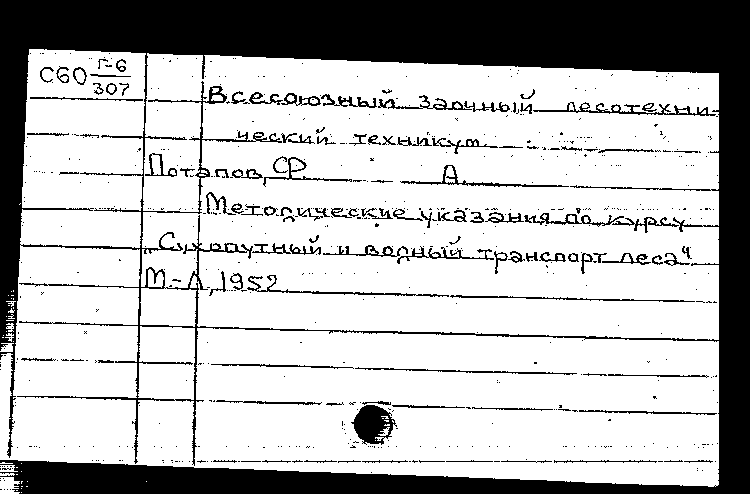 С60 Г-6/307
Всесоюзный заочный лесотехни-
ческий техникум
Потапов, Ф. А.
Методические указания по курсу
„Сухопутный и водный транспорт леса"
М-Л, 1952